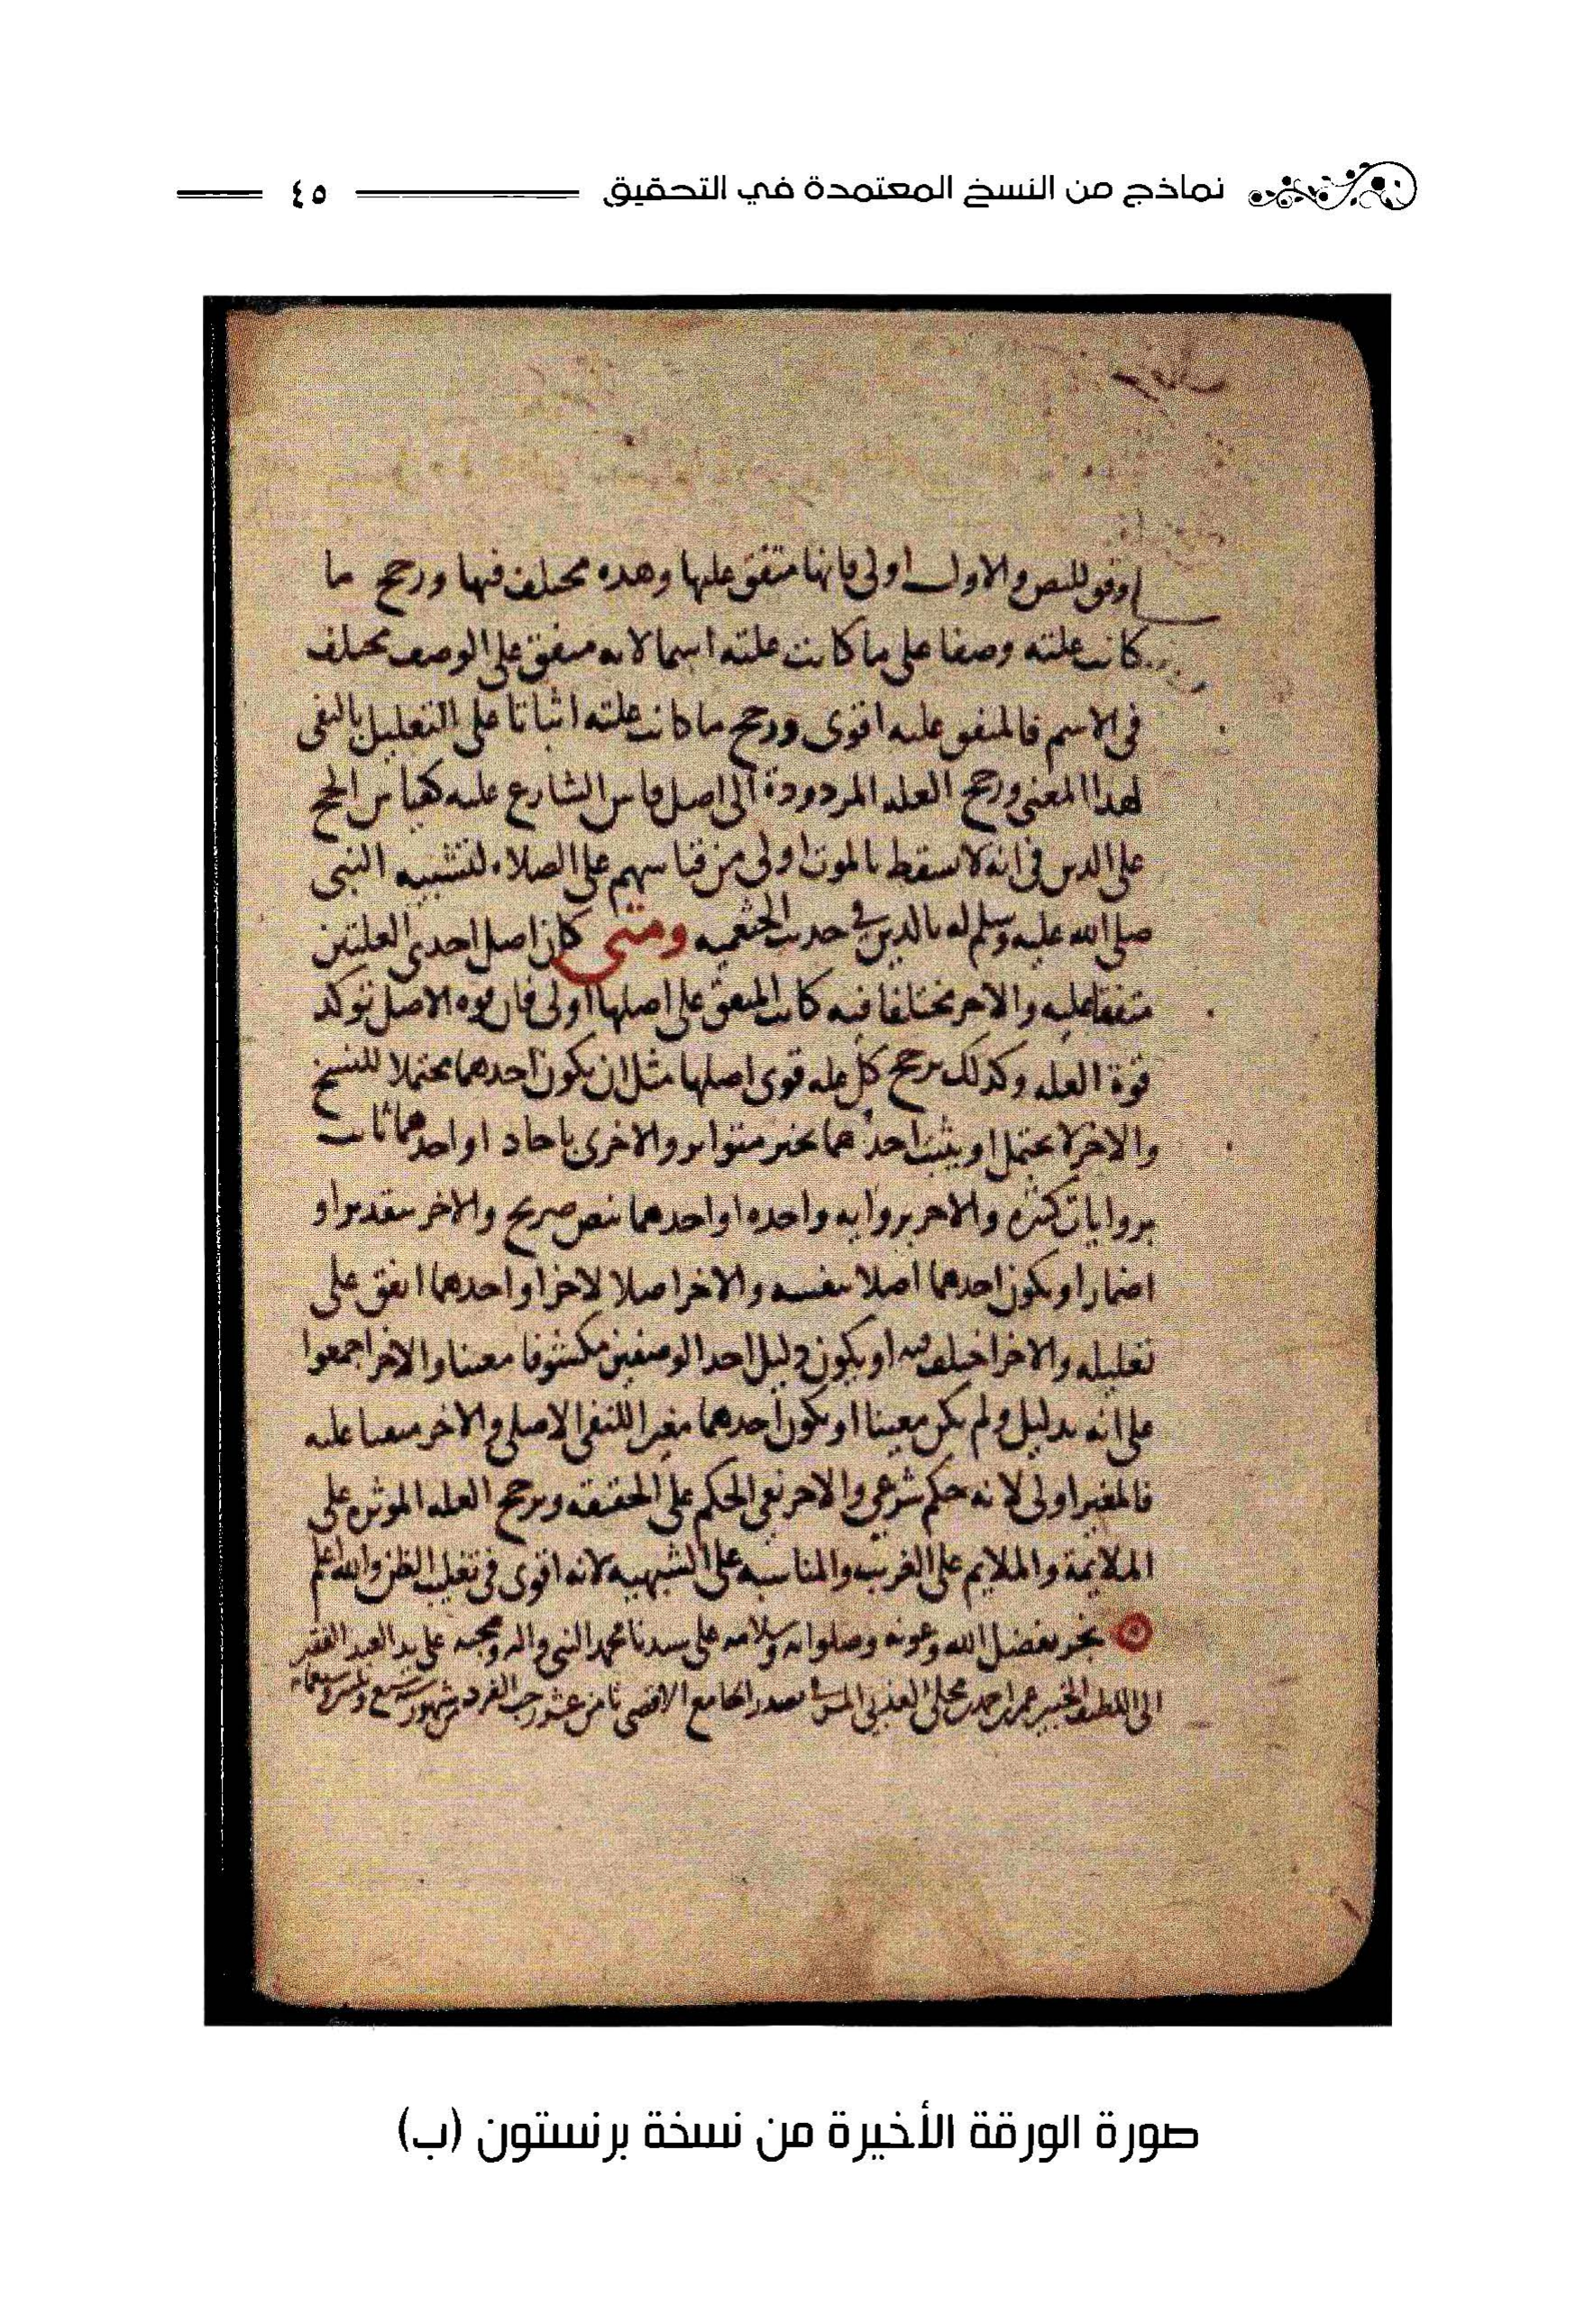 نماذج من النسخ المعتمدة في التحقيق ٤٥
اوفق للنص والاول اولى فانها متفق عليها وهذه مختلف فيها ورجح ما
كانت علته وصفا على ما كانت علته اسما لانه متفق على الوصف مختلف
في الاسم فالمتفق عليه اقوى ورجح ما كانت علته اثباتا على التعليل بالنفي
لهذا المعنى ورجح العله المردودة الى اصل قاس الشارع عليه كقياس الحج
على الدين في انه لا يسقط بالموت اولى من قياسهم على الصلاه لتشبيه النبي
صلى الله عليه وسلم له بالدين في حديث الخثعميه ومتى كان اصل احدى العلتين
متفقا عليه والاخر مختلفا فيه كانت المتفق على اصلها اولى فان قوه الاصل توكد
قوة العله وكذلك ترجح كل عله قوى اصلها مثل ان يكون احدهما محتملا للنسخ
والاخر لا يحتمل او يثبت احدهما بخبر متواتر والاخرى باحاد او احدهما ثابت
بروايات كثيره والاخر بروايه واحده او احدهما بنص صريح والاخر بتقدير او
اضمار او يكون احدهما اصلا بنفسه والاخر اصلا لاخر او احدهما اتفق على
تعليله والاخر اختلف فيه او يكون دليل احد الوصفين مكشوفا معينا والاخر اجمعوا
على انه بدليل ولم يكن معينا او يكون احدهما مغيرا للنفي الاصلي والاخر مبقيا عليه
فالمغير اولى لانه حكم شرعي والاخر نفي الحكم على الحقيقه وترجح العله الموثره على
الملايمة والملايم على الغريب والمناسبه على الشبهيه لانه اقوى في تغليب الظن والله اعلم
نجز بفضل الله وعونه وصلواته وسلامه على سيدنا محمد النبي واله وصحبه على يد العبد الفقير
الى اللطيف الخبير عمر بن احمد بن بصدر الجامع الاقصى ثامن عشر رجب الفرد من شهور سنه
صورة الورقة الأخيرة من نسخة برنستون (ب)